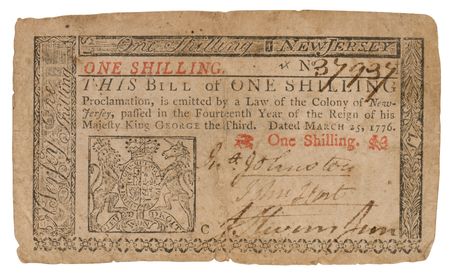 One Shilling NEW JERSEY
ONE SHILLING. No 37937
THIS BILL of ONE SHILLING
Proclamation, is emitted by a Law of the Colony of New-
Jersey, passed in the Fourteenth Year of the Reign of his
Majesty King GEORGE the Third. Dated MARCH 25, 1776.
One Shilling.
Johnston
John Hart
J Stevens Junr
C
N. Jersey One Shilling